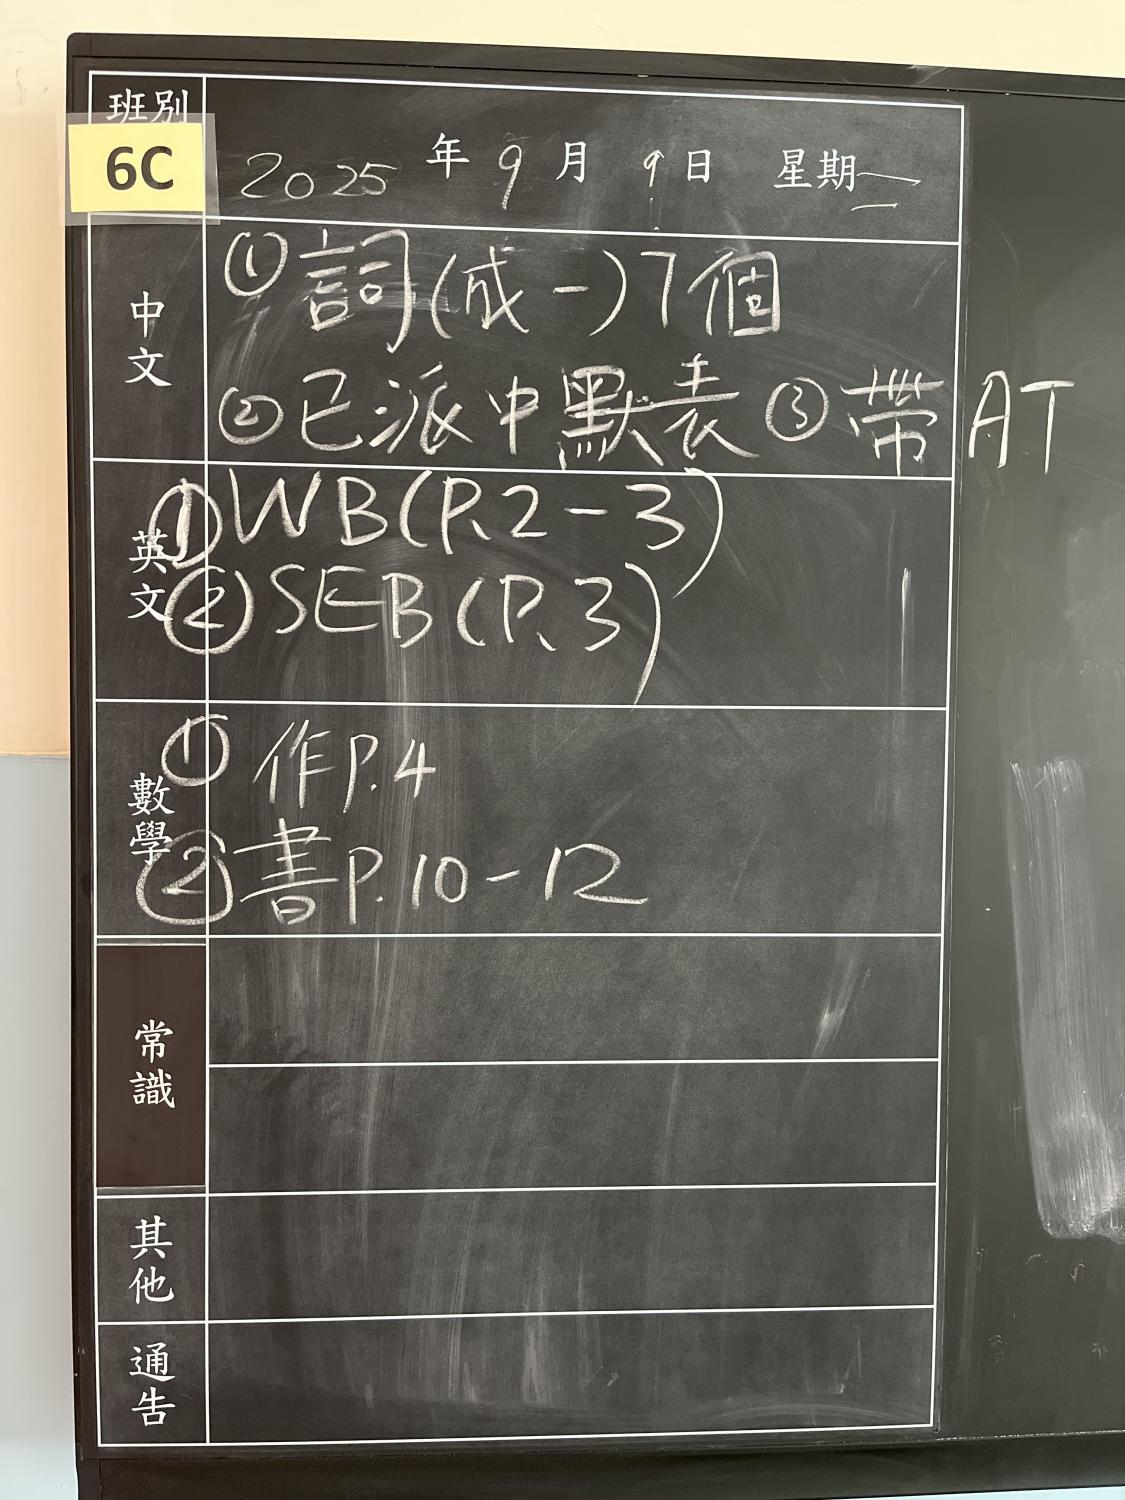 班別
6C
2025年9月9日 星期二
中文
①詞(成一)7個
②已派中默表 ③帶AT
英文
①WB(P.2-3)
②SEB(P.3)
數學
①作P.4
②書P.10-12
常識
其他
通告